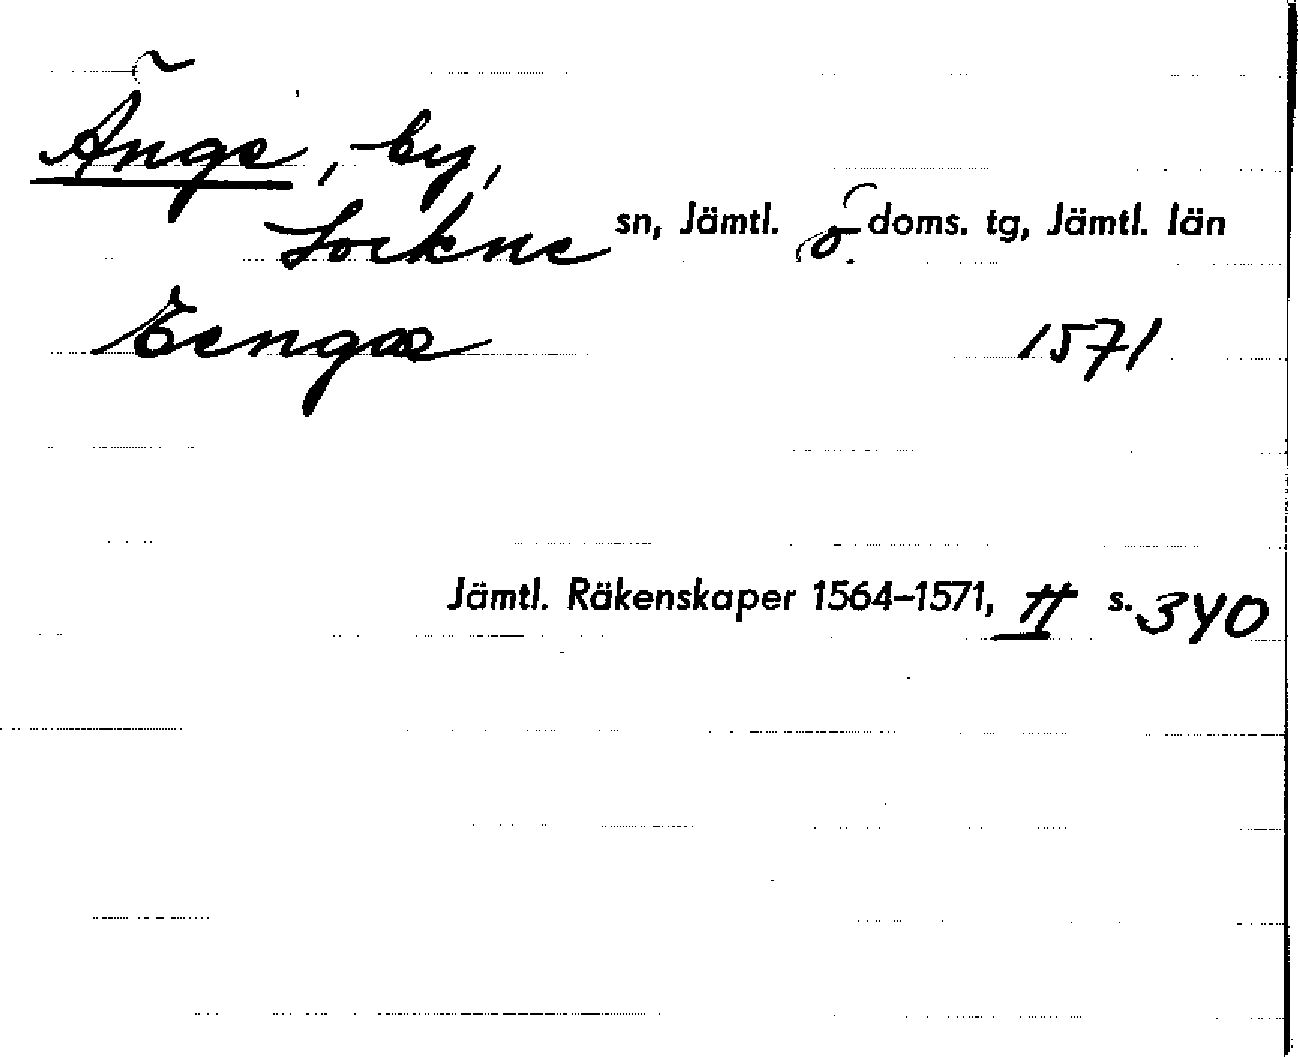 Änge, by,
Lockne sn, Jämtl. ö. doms. tg, Jämtl. län
Eengæ 1571
Jämtl. Räkenskaper 1564–1571, II s. 340